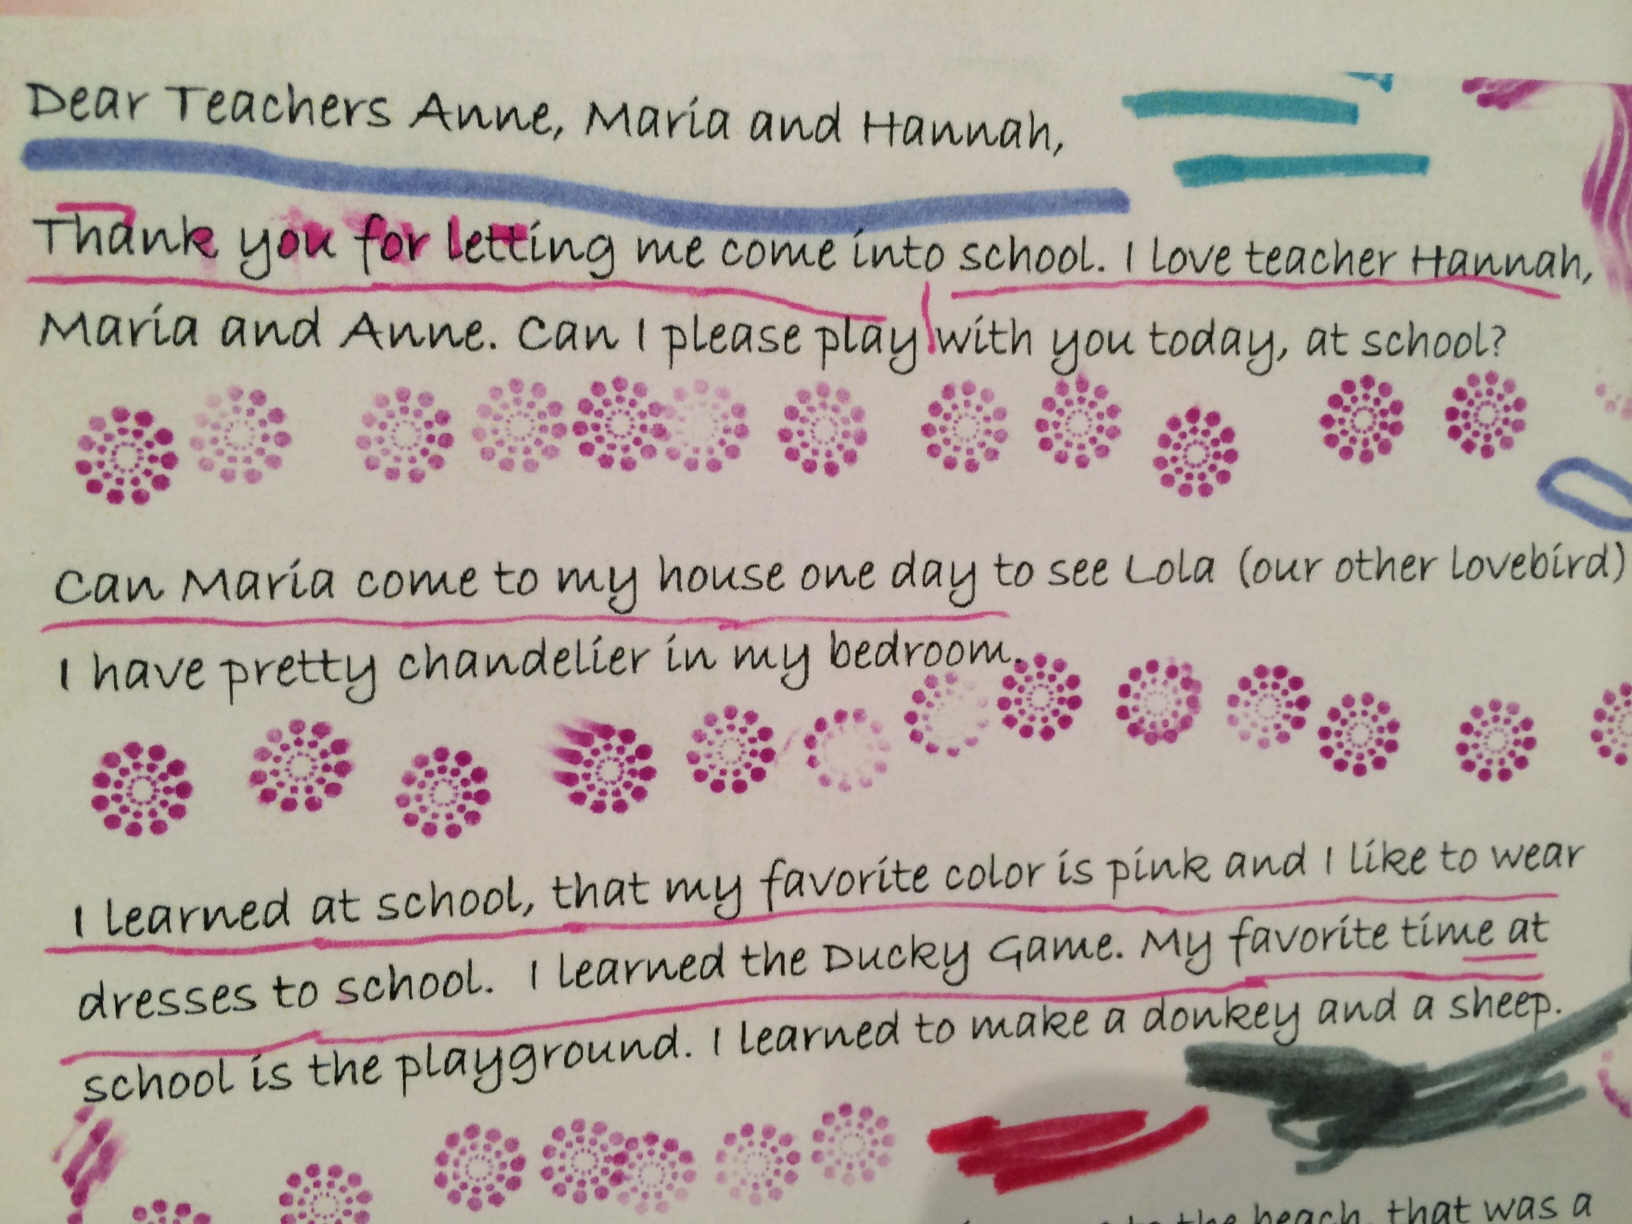 Dear Teachers Anne, Maria and Hannah,
Thank you for letting me come into school. I love teacher Hannah,
Maria and Anne. Can I please play with you today, at school?
Can Maria come to my house one day to see Lola (our other lovebird)
I have pretty chandelier in my bedroom.
I learned at school, that my favorite color is pink and I like to wear
dresses to school. I learned the Ducky Game. My favorite time at
school is the playground. I learned to make a donkey and a sheep.
to the beach, that was a